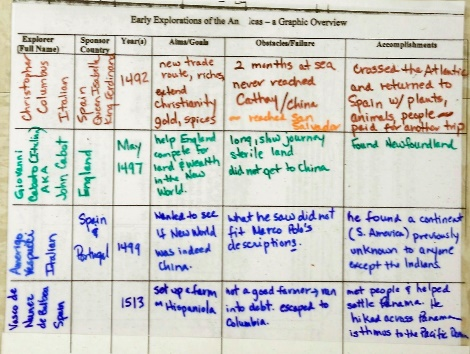 Early Explorations of the An icas – a Graphic Overview
Explorer
(Full Name)
Sponsor
Country
Year(s)
Aims/Goals
Obstacles/Failure
Accomplishments
Christopher
Columbus
Italian
Spain
Queen Isabella
King Ferdinand
1492
new trade
route, riches,
extend
christianity
gold, spices
2 months at sea
never reached
Cathay/China
- reached San
Salvador
Crossed the Atlantic
and returned to
Spain w/ plants,
animals, people
paid for another trip
Giovanni
Caboto (Italian)
AKA
John Cabot
England
May
1497
help England
compete for
land & wealth
in the New
World.
long, slow journey
sterile land
did not get to China
Found Newfoundland
Amerigo
Vespucci
Italian
Spain
&
Portugal
1499
Wanted to see
if New World
was indeed
China.
What he saw did not
fit Marco Polo's
descriptions.
he found a continent
(S. America) previously
unknown to anyone
except the Indians
Vasco de
Nunez
de Balboa
Spain
1513
set up a farm
on Hispaniola
not a good farmer & ran
into debt. escaped to
Columbia.
met people & helped
settle Panama. He
hiked across Panama
isthmus to the Pacific